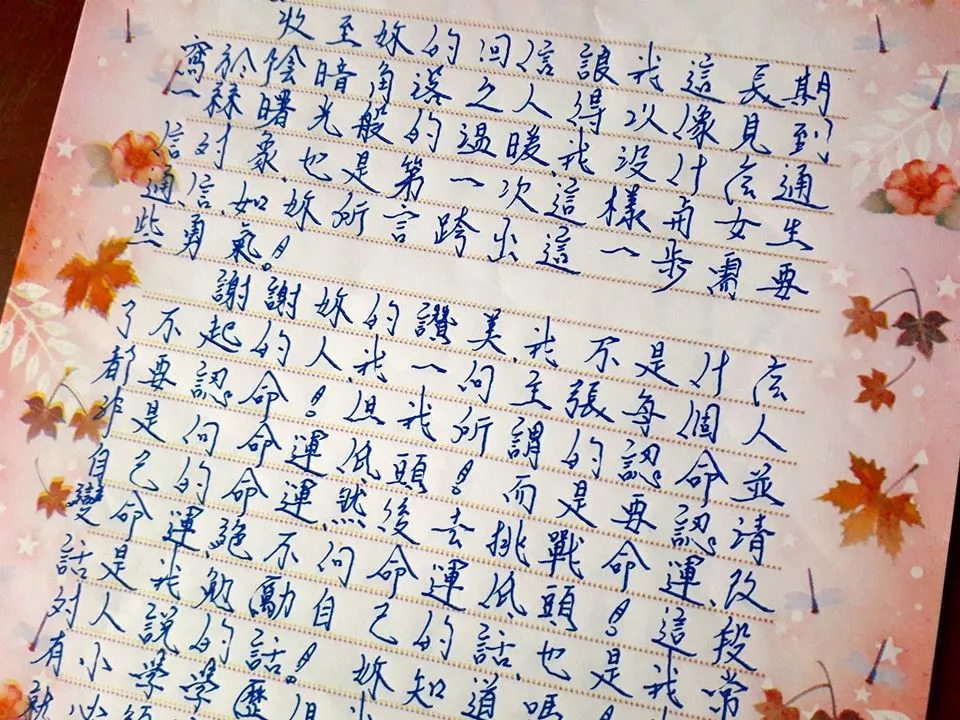 收至妳的回信讓我這長期
窩於陰暗角落之人得以像見到
一絲曙光般的溫暖,我沒什麼通
信對象,也是第一次這樣与女生
通信,如妳所言跨出這一步需要
些勇氣!。
謝謝妳的讚美,我不是什麼
了不起的人,我一向主張每個人
都要認命!但我所謂的認命並
非是向命運低頭!而是要認清
自己的命運然後去挑戰命運,改
變命運,絕不向命運低頭!這段
話是我勉勵自己的話,也是我常
對人說的話!妳知道嗎
有小學學歷
就必須